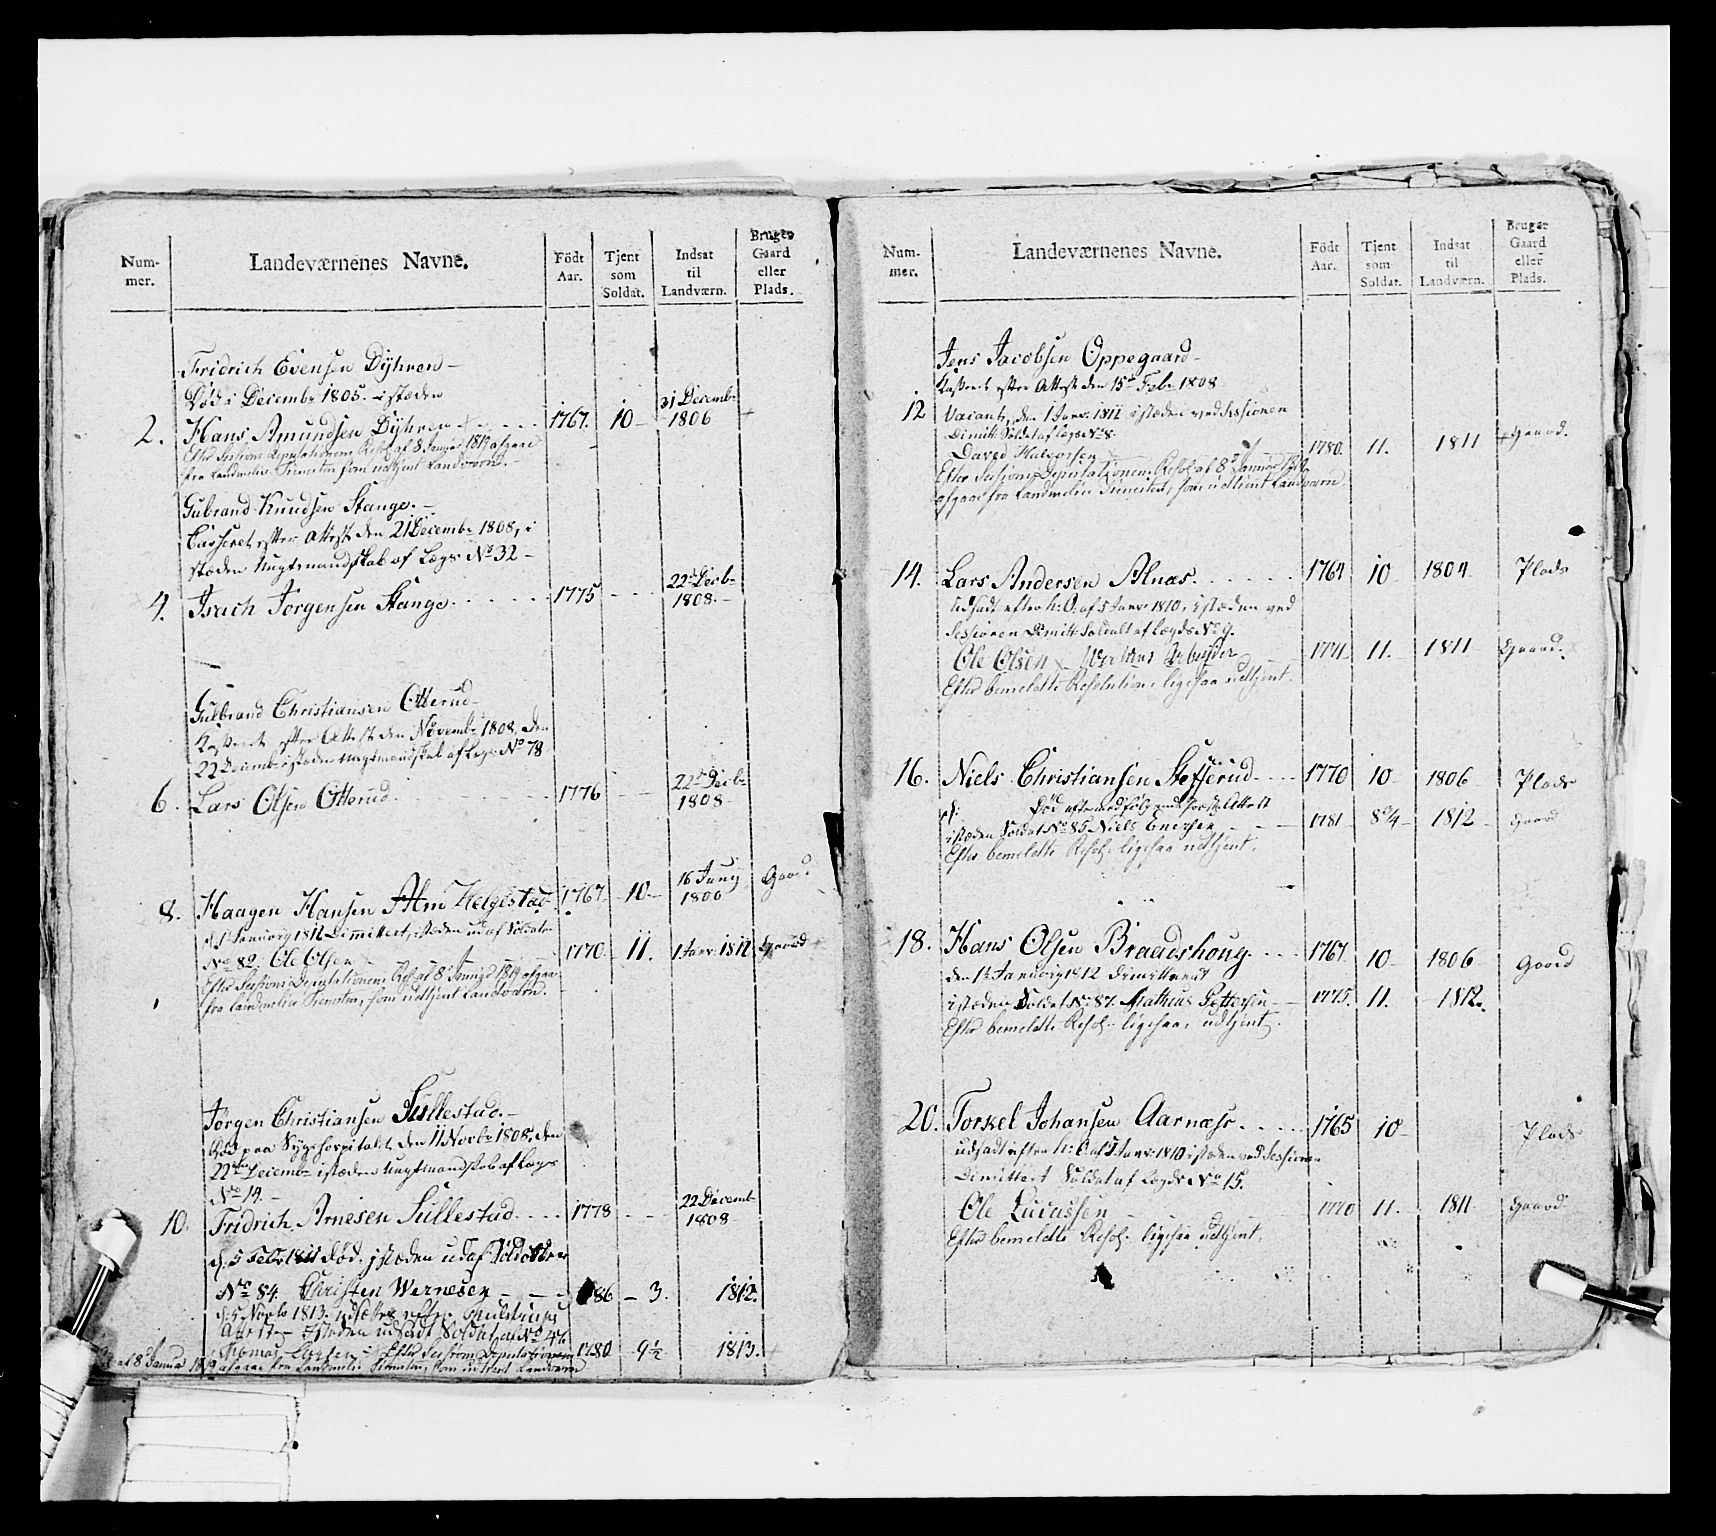 Num-
mer.
Landeværnenes Navne.
Født
Aar.
Tjent
som
Soldat.
Indsat
til
Landværn.
Bruger
Gaard
eller
Plads.
Fridrich Evensen Dÿhren -
Død i Decembr 1805. istæden
2. Hans Amundsen Dÿhren 1767. 10 31 Decembr 1806
Efter Sessions Deputationens Resol. af 8 Januar 1819 afgaae
fra Landmilice Tienesten som udtjent Landværn.
Gubrand Knudsen Stange. -
Casseret efter Attest den 21 Decembr 1808, i
stæden Ungtmandskab af Lægs No 32 -
4. Isach Jørgensen Stange 1775 22 Decbr 1808. -
Gulbrand Christiansen Otterud -
Kasseret efter Attest den Novembr 1808, den
22 Decembr istæden ungtmandskab af Lægs No 78
6. Lars Olsen Otterud 1776 22 Decbr 1808 -
8. Haagen Hansen Alm Helgestad 1767. 10 16 Junij 1806 Gaard.
d. 1 Januarij 1812 Dimittert, istæden ud af Soldater
No 82. Ole Olsen 1770. 11. 1 Janr. 1812 Gaard
Efter Sessions Deputationens Resol. af 8 Januar 1819 afgaae
fra Landmilice Tienesten, som udtjent Landværn.
Jørgen Christiansen Sullestad. -
død paa Sygehospitalet den 11 Novbr 1808, den
22 Decembr istæden ungtmandskab af Lægs
No 14. -
10. Fridrich Arnesen Sullestad 1778 22 Decemb 1808 -
d. 5 Febr 1811 død. istæden ud af Soldater
No 84. Christen Wernesen - - - 86 - 3. 1812.
d. 5 Novbr 1813 udsættes efter
Attest - istæden udsadt Soldat af No 46
Thomas Efter Sessions Deputationens 1780 9 1/2 1813.
af 8 Januar 1819 afgaae fra Landmilice Tienesten, som udtient Landværn
Num-
mer.
Landeværnenes Navne.
Født
Aar.
Tjent
som
Soldat.
Indsat
til
Landværn.
Bruger
Gaard
eller
Plads.
Jens Jacobsen Oppegaard -
Kasseret efter Attest den 15 Febr 1808
12 Vacant, den 1 Janr. 1811 istæden ved Sessionen
Dimitt. Soldat af Lægs No 8.
David Halvorsen 1780. 11. 1811 Gaard.
Efter Sessions Deputationens Resol. af 8 Januar 1819
afgaae fra Landmilice Tienesten, som udtient Landværn
14. Lars Andersen Alnæs 1764 10 1804 Plads
Udsadt efter h: O. af 5 Janr 1810, istæden ved
Sessionen Dimitt: Soldat af Lægds No 9.
Ole Olsen 1771 11. 1811 Gaard.
Efter bemeldte Resolution, ligesaa udtjent.
16. Niels Christiansen Stofferud 1770 10 1806 Plads
d. Død efter medfølgende Attest
istæden Soldat No 85 Niels Enersen 1781 8 3/4 1812 Gaard
Efter bemeldte Resol. ligesaa udtjent.
18. Hans Olsen Braadshoug 1767 10 1806 Gaard
den 1 Januarij 1812 Dimitteret
istæden Soldat No 87. Mathias Pettersen 1775. 11. 1812.
Efter bemeldte Resol. ligesaa, udtjent.
20. Torkel Johansen Aarnæss 1765 10 Plads
udsadt efter h: O. af 5 Janr. 1810 istæden ved Sessionen
Dimittert Soldat af Lægds No 15.
Ole Lucassen 1770 11. 1811 Gaard
Efter bemeldte Resol. ligesaa udtjent.